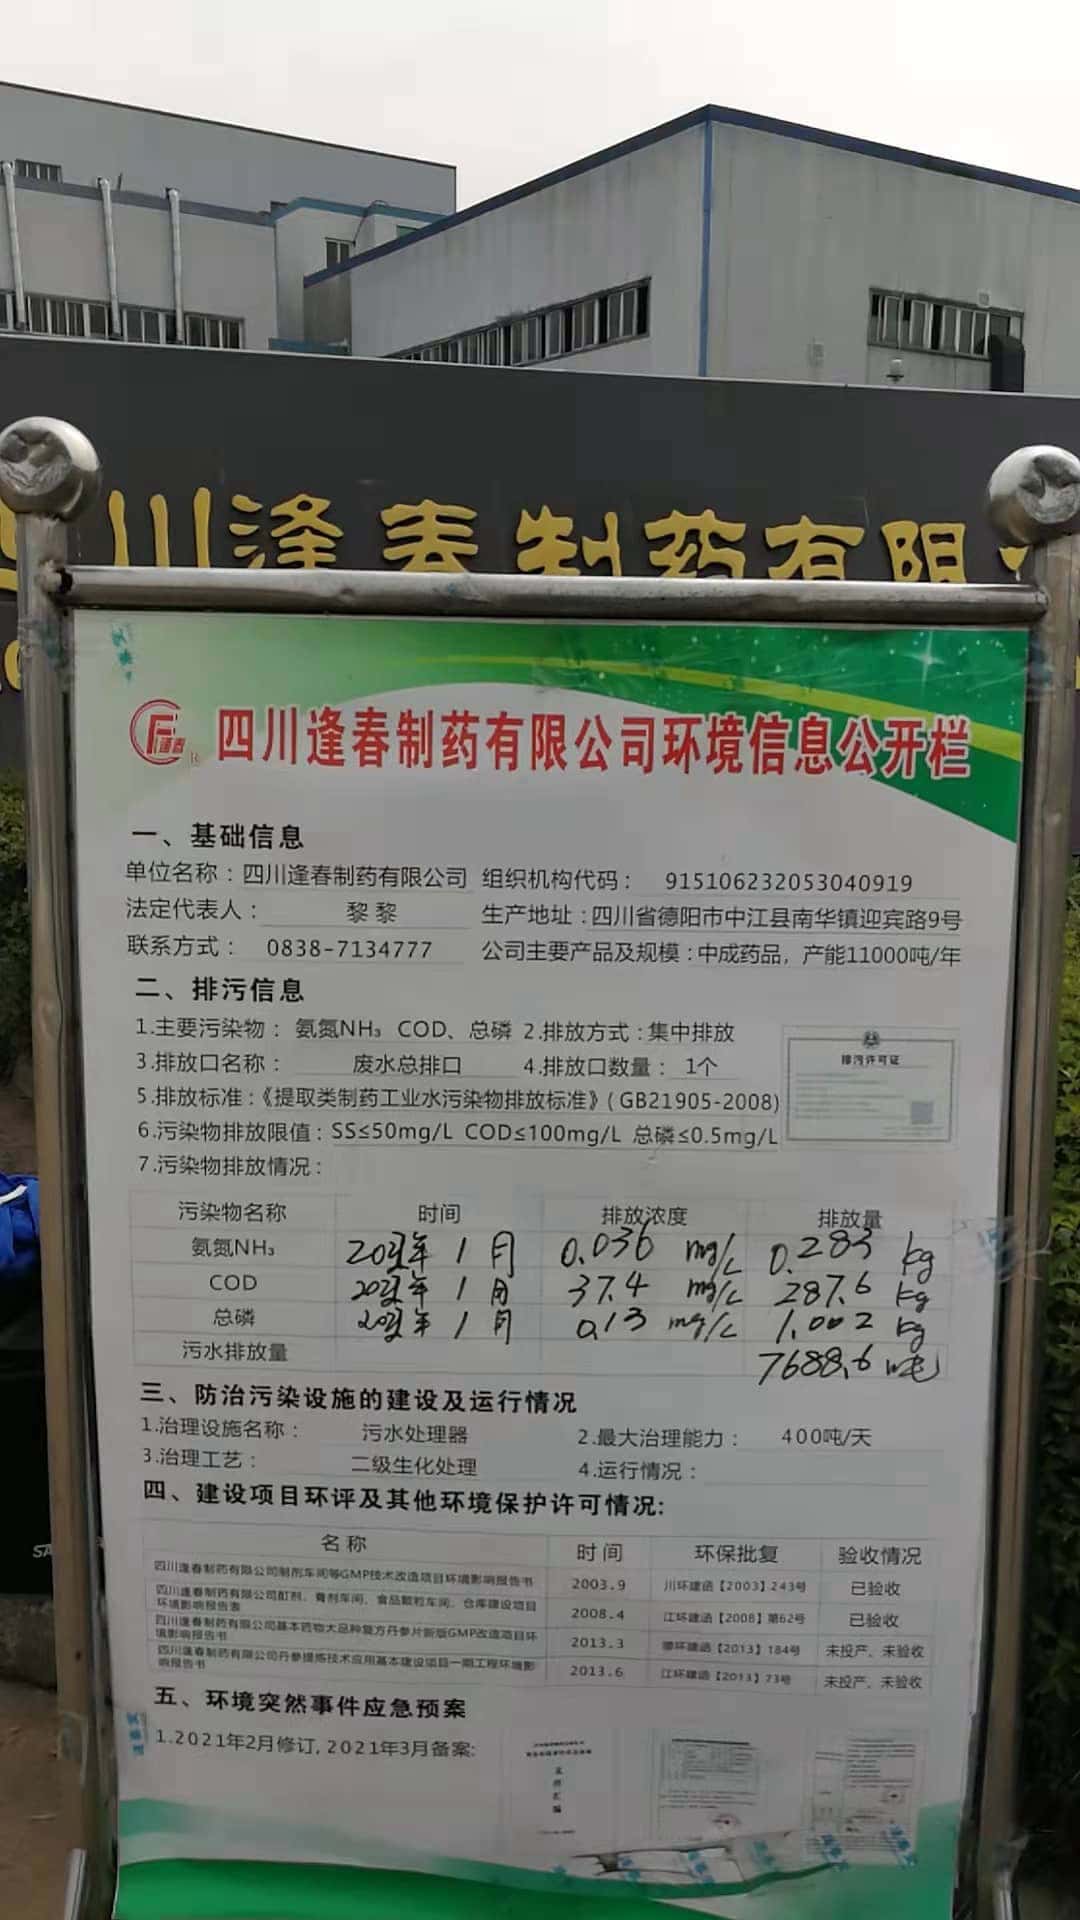 川逢春制药有限
四川逢春制药有限公司环境信息公开栏
一、基础信息
单位名称：四川逢春制药有限公司 组织机构代码： 915106232053040919
法定代表人： 黎黎 生产地址：四川省德阳市中江县南华镇迎宾路9号
联系方式： 0838-7134777 公司主要产品及规模：中成药品，产能11000吨/年
二、排污信息
1.主要污染物： 氨氮NH₃ COD、总磷 2.排放方式：集中排放
3.排放口名称： 废水总排口 4.排放口数量： 1个
排污许可证
5.排放标准：《提取类制药工业水污染物排放标准》(GB21905-2008)
6.污染物排放限值：SS≤50mg/L COD≤100mg/L 总磷≤0.5mg/L
7.污染物排放情况：
污染物名称 时间 排放浓度 排放量
氨氮NH₃ 年1月 0.036 mg/L 0.283 kg
COD 年1月 37.4 mg/L 287.6 kg
总磷 年1月 0.13 mg/L 1.002 kg
污水排放量 7688.6 吨
三、防治污染设施的建设及运行情况
1.治理设施名称： 污水处理器 2.最大治理能力： 400吨/天
3.治理工艺： 二级生化处理 4.运行情况：
四、建设项目环评及其他环境保护许可情况:
名称 时间 环保批复 验收情况
四川逢春制药有限公司制剂车间等GMP技术改造项目环境影响报告书 2003.9 川环建函【2003】243号 已验收
四川逢春制药有限公司酊剂、膏剂车间、食品颗粒车间、仓库建设项目
环境影响报告表 2008.4 江环建函【2008】第62号 已验收
四川逢春制药有限公司基本药物大品种复方丹参片新版GMP改造项目环
境影响报告书 2013.3 环建函【2013】184号 未投产、未验收
四川逢春制药有限公司丹参提炼技术应用基本建设项目一期工程环境影
响报告书 2013.6 江环建函【2013】73号 未投产、未验收
五、环境突然事件应急预案
1.2021年2月修订, 2021年3月备案: